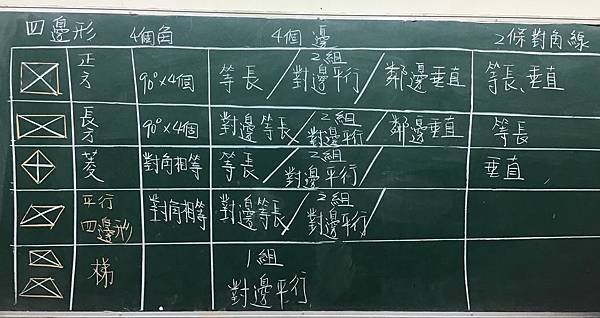 四邊形 4個角 4個邊 2條對角線
正方 90°×4個 等長/2組對邊平行/鄰邊垂直 等長、垂直
長方 90°×4個 對邊等長/2組對邊平行/鄰邊垂直 等長
菱 對角相等 等長/2組對邊平行/ 垂直
平行四邊形 對角相等 對邊等長/2組對邊平行/
梯 1組對邊平行